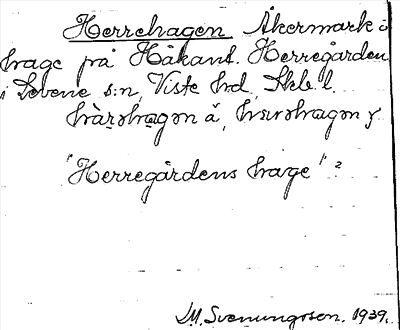 Herrehagen Åkermark o
hage på Håkans. Herregården
i Levene s:n, Viste hd, Skb. l.
hàrəhagən ä,
"Herregårdens hage" ?
D.M. Svenungsson. 1939.